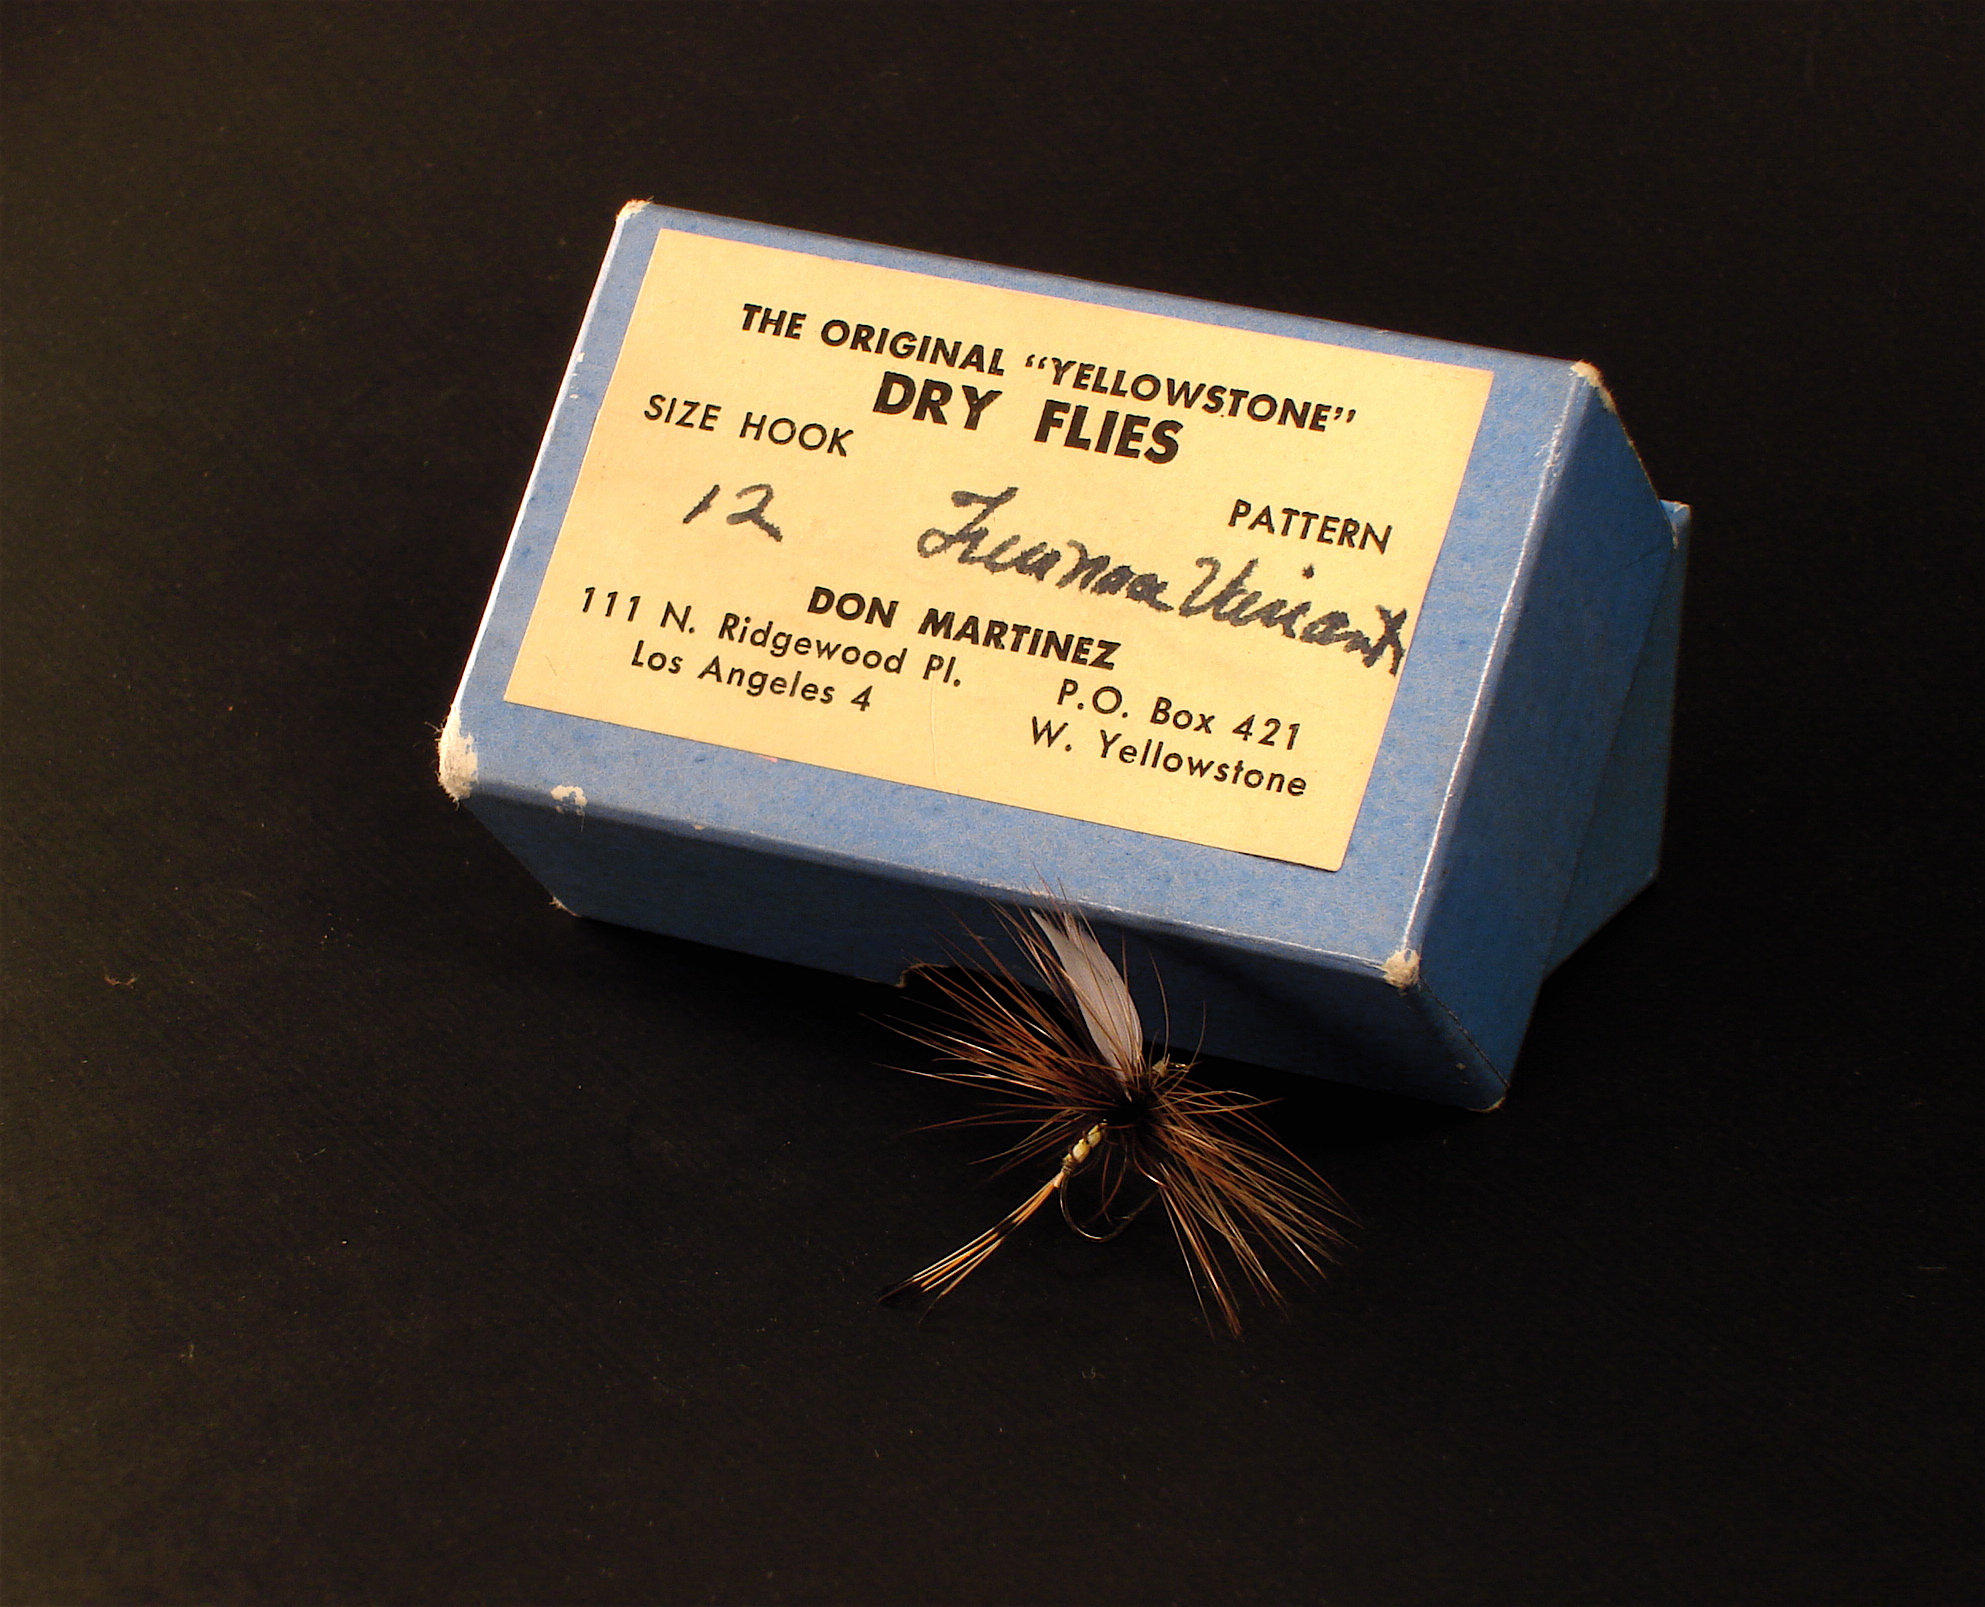 THE ORIGINAL “YELLOWSTONE”
DRY FLIES
SIZE HOOK
PATTERN
12
Variant
DON MARTINEZ
111 N. Ridgewood Pl.
Los Angeles 4
P.O. Box 421
W. Yellowstone